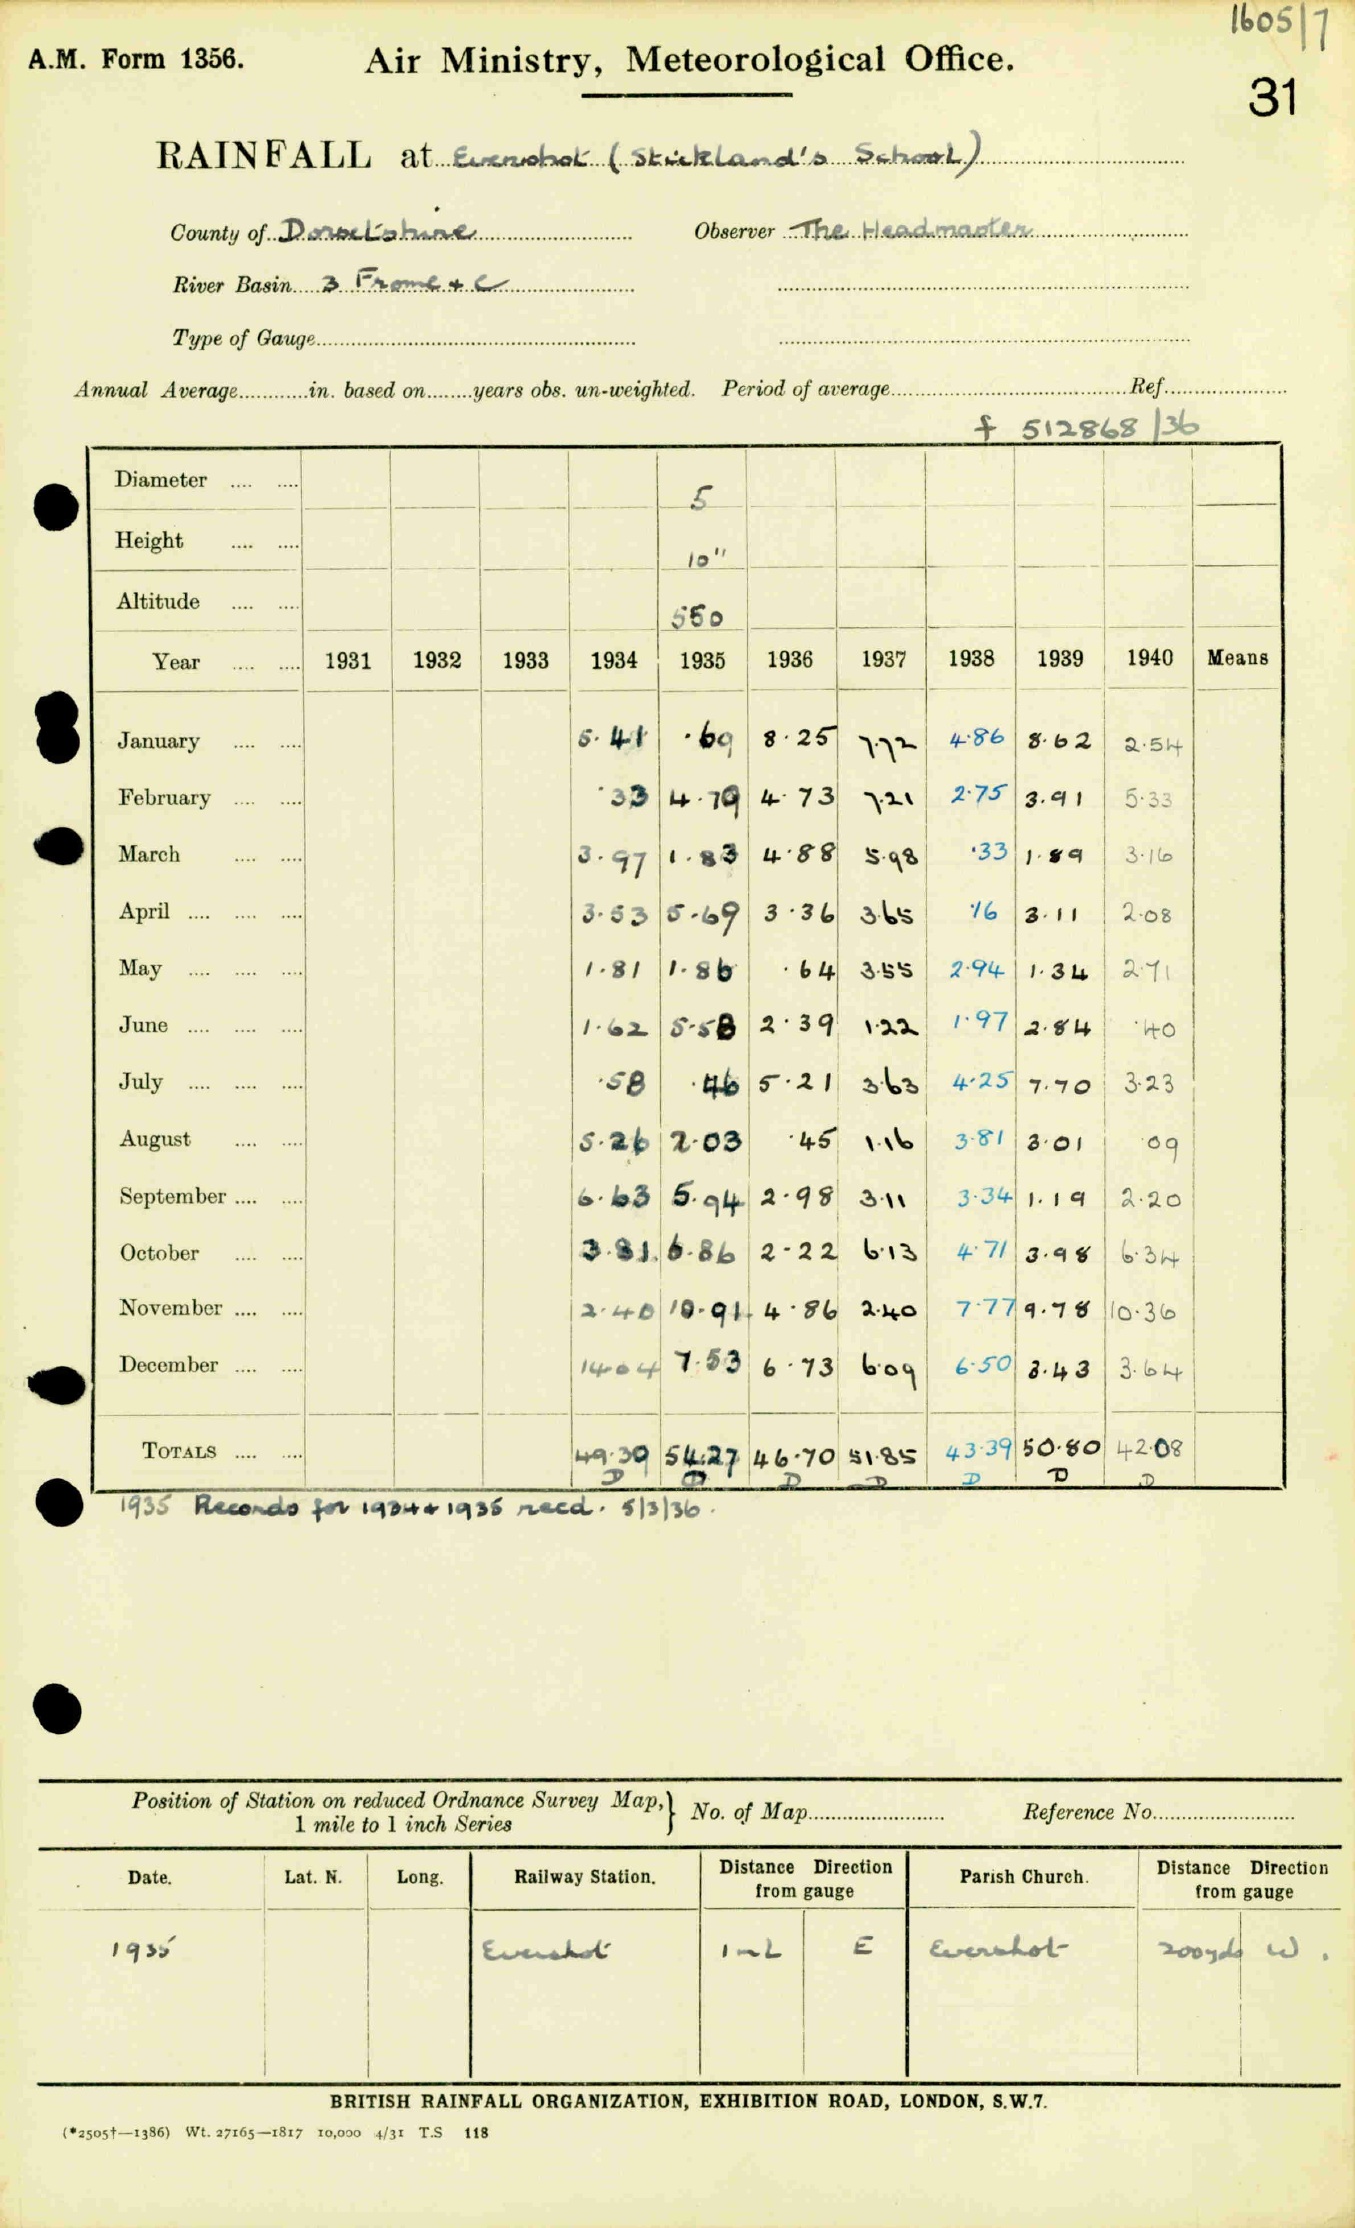 1605/7
A.M. Form 1356. Air Ministry, Meteorological Office.
31
RAINFALL at Evershot (Stickland's School)
County of Dorsetshire Observer The Headmaster
River Basin 3 Frome & C
Type of Gauge
Annual Average in. based on years obs. un-weighted. Period of average Ref.
f 512868/36
Diameter 5
Height 10"
Altitude 550
Year 1931 1932 1933 1934 1935 1936 1937 1938 1939 1940 Means
January 5.41 .69 8.25 7.72 4.86 8.62 2.54
February .33 4.79 4.73 7.21 2.75 3.91 5.33
March 3.97 1.83 4.88 5.98 .33 1.89 3.16
April 3.53 5.69 3.36 3.65 .16 3.11 2.08
May 1.81 1.86 .64 3.55 2.94 1.34 2.71
June 1.62 5.58 2.39 1.22 1.97 2.84 .40
July .58 .46 5.21 3.63 4.25 7.70 3.23
August 5.26 2.03 .45 1.16 3.81 3.01 .09
September 6.63 5.94 2.98 3.11 3.34 1.19 2.20
October 3.81 6.86 2.22 6.13 4.71 3.98 6.34
November 2.40 10.91 4.86 2.40 7.77 9.78 10.36
December 14.04 7.53 6.73 6.09 6.50 3.43 3.64
TOTALS 49.39 54.27 46.70 51.85 43.39 50.80 42.08
D D D D D D D
1935 Records for 1934 & 1935 recd. 5/3/36.
Position of Station on reduced Ordnance Survey Map, No. of Map Reference No.
1 mile to 1 inch Series
Date. Lat. N. Long. Railway Station. Distance Direction from gauge Parish Church. Distance Direction from gauge
1935 Evershot 1 mL E Evershot 200yds W.
BRITISH RAINFALL ORGANIZATION, EXHIBITION ROAD, LONDON, S.W.7.
(*2505†—1386) Wt. 27165—1817 10,000 4/31 T.S 118